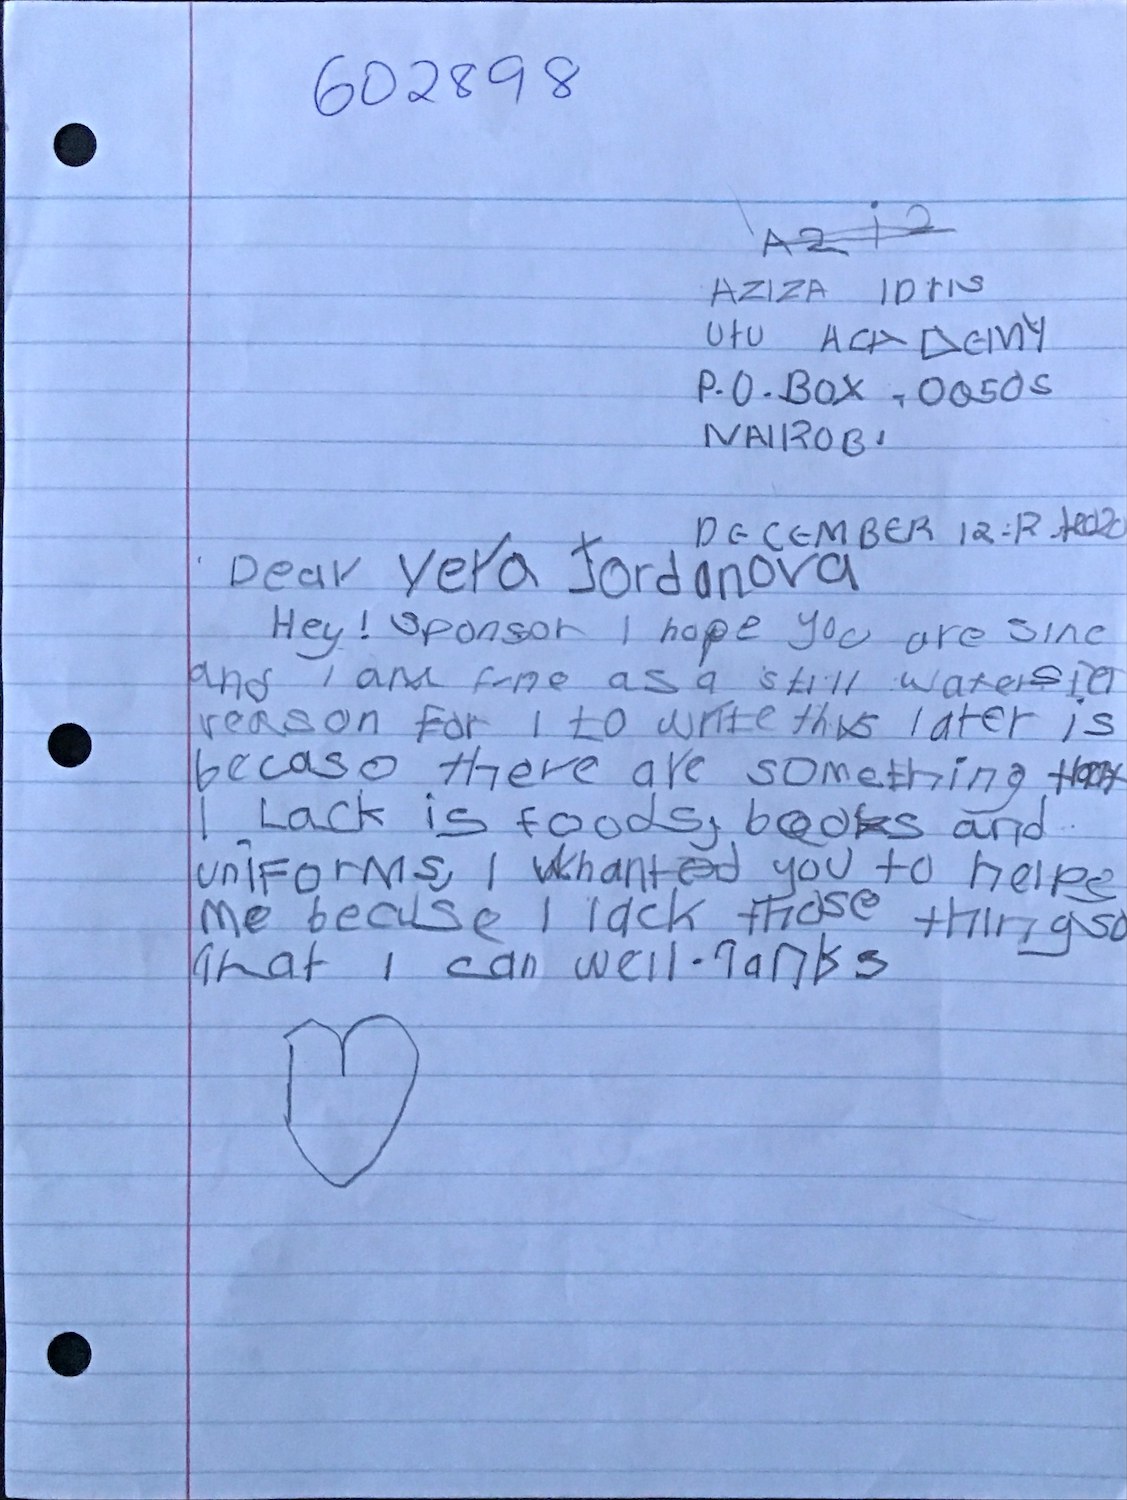 602898
AZIZA IDris
UtU ACADEMY
P.O.BOX , 00505
NAIROBi
DECEMBER 12:12
Dear Vera Jordanova
Hey! Sponsor I hope you are sine
and I am fine as a still water
reason for I to write this later is
becaso there are something
I Lack is foods, books and
uniForMs, I whanted you to helpe
me becuse I lack those things so
that I can well. Tanks